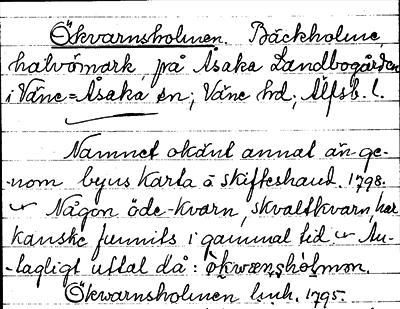 Ökvarnsholmen. Bäckholme
halvömark, på Åsaka Landbogården
i Väne=Åsaka sn; Väne hd; Älfsb. l.
Namnet okänt annat än ge-
-nom byns Karta å skifteshand. 1798.
Någon öde-kvarn, skvaltkvarn, har
kanske funnits i gammal tid. An-
-tagligt uttal då: òkwænshòlmən.
Ökwarnsholmen lsnh. 1795.